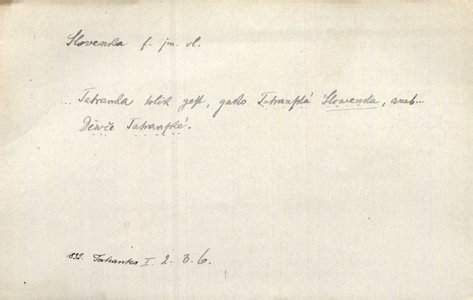 Slovenka f. jm. vl.
.. Tatranka tolik gest, gako Tatranská Slowenka, aneb...
Děwče Tatranské.
832. Tatranka I. 2. 3. 6.